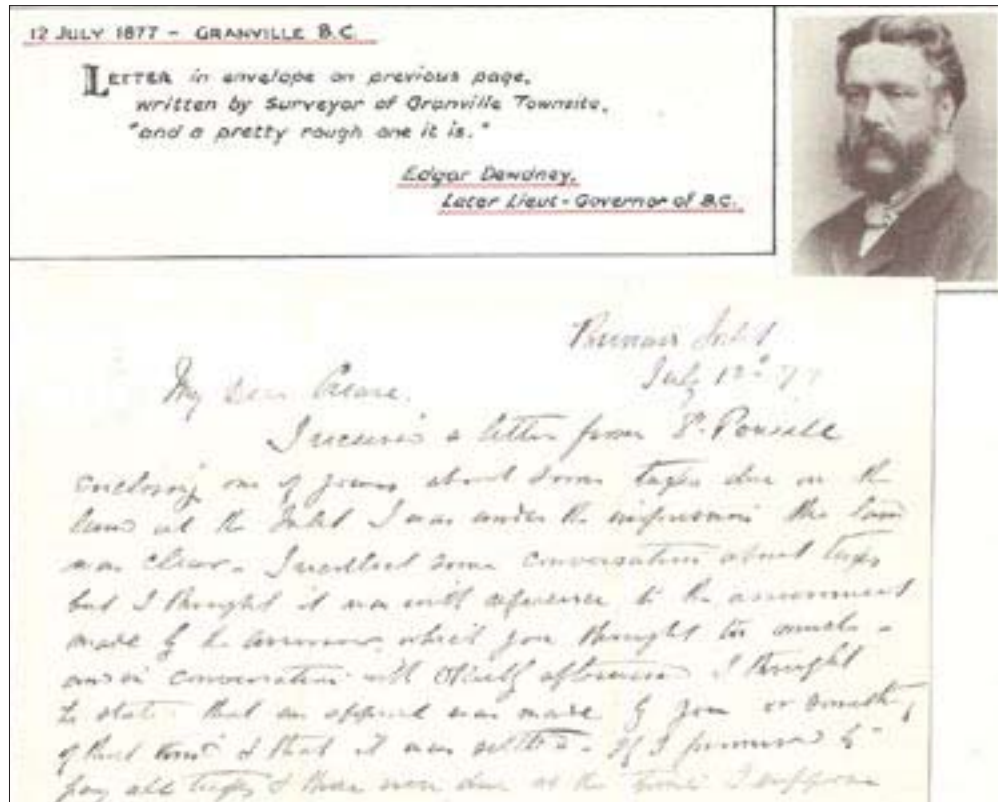 12 JULY 1877 - GRANVILLE B.C.
LETTER in envelope on previous page,
written by Surveyor of Granville Townsite,
"and a pretty rough one it is."
Edgar Dewdney,
Later Lieut-Governor of B.C.
Burrard Inlet
July 12th 77
My Dear Crease.
I received a letter from P.
enclosing one of yours about some taxes due on the
land at the Inlet I was under the impression the land
was clear. I recollect some conversation about taxes
but I thought it was with reference to the assessment
made by the assessor which you thought too much.
and in conversation with afterwards I thought
to state that an appeal was made by you or something
of that kind & that it was settled. If I promised to
pay all taxes & these were due at the time I suppose